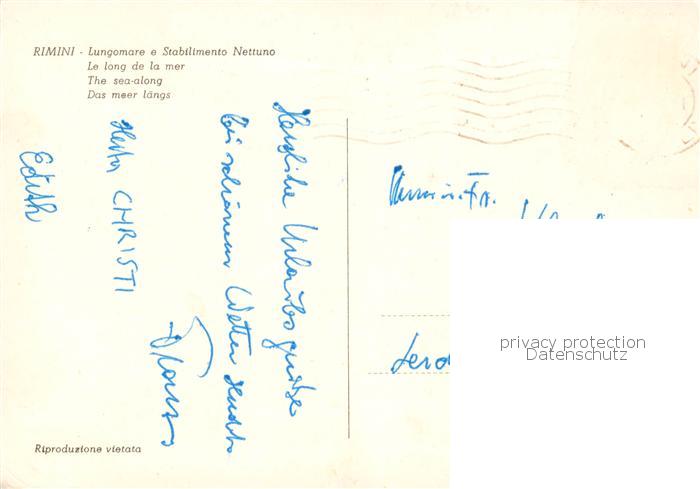 RIMINI - Lungomare e Stabilimento Nettuno
Le long de la mer
The sea-along
Das meer längs
Herzliche Urlaubsgrüße
bei schönem Wetter sendet
Herta CHRISTI
Edith
privacy protection
Datenschutz
Riproduzione vietata